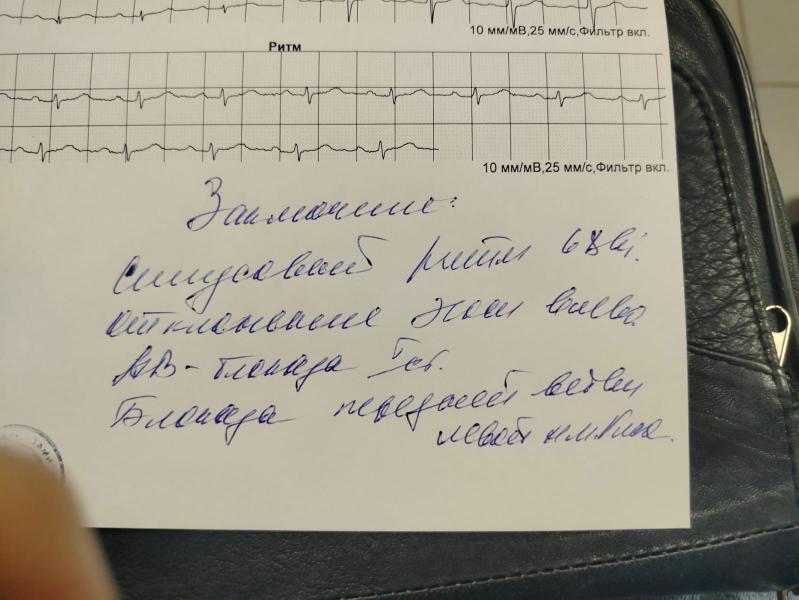 10 мм/мВ,25 мм/с,Фильтр вкл.
Ритм
10 мм/мВ,25 мм/с,Фильтр вкл.
Заключение:
Синусовый ритм 68
отклонение эос влево
АВ-блокада I ст.
Блокада передней ветви
левой н.п.Гиса.